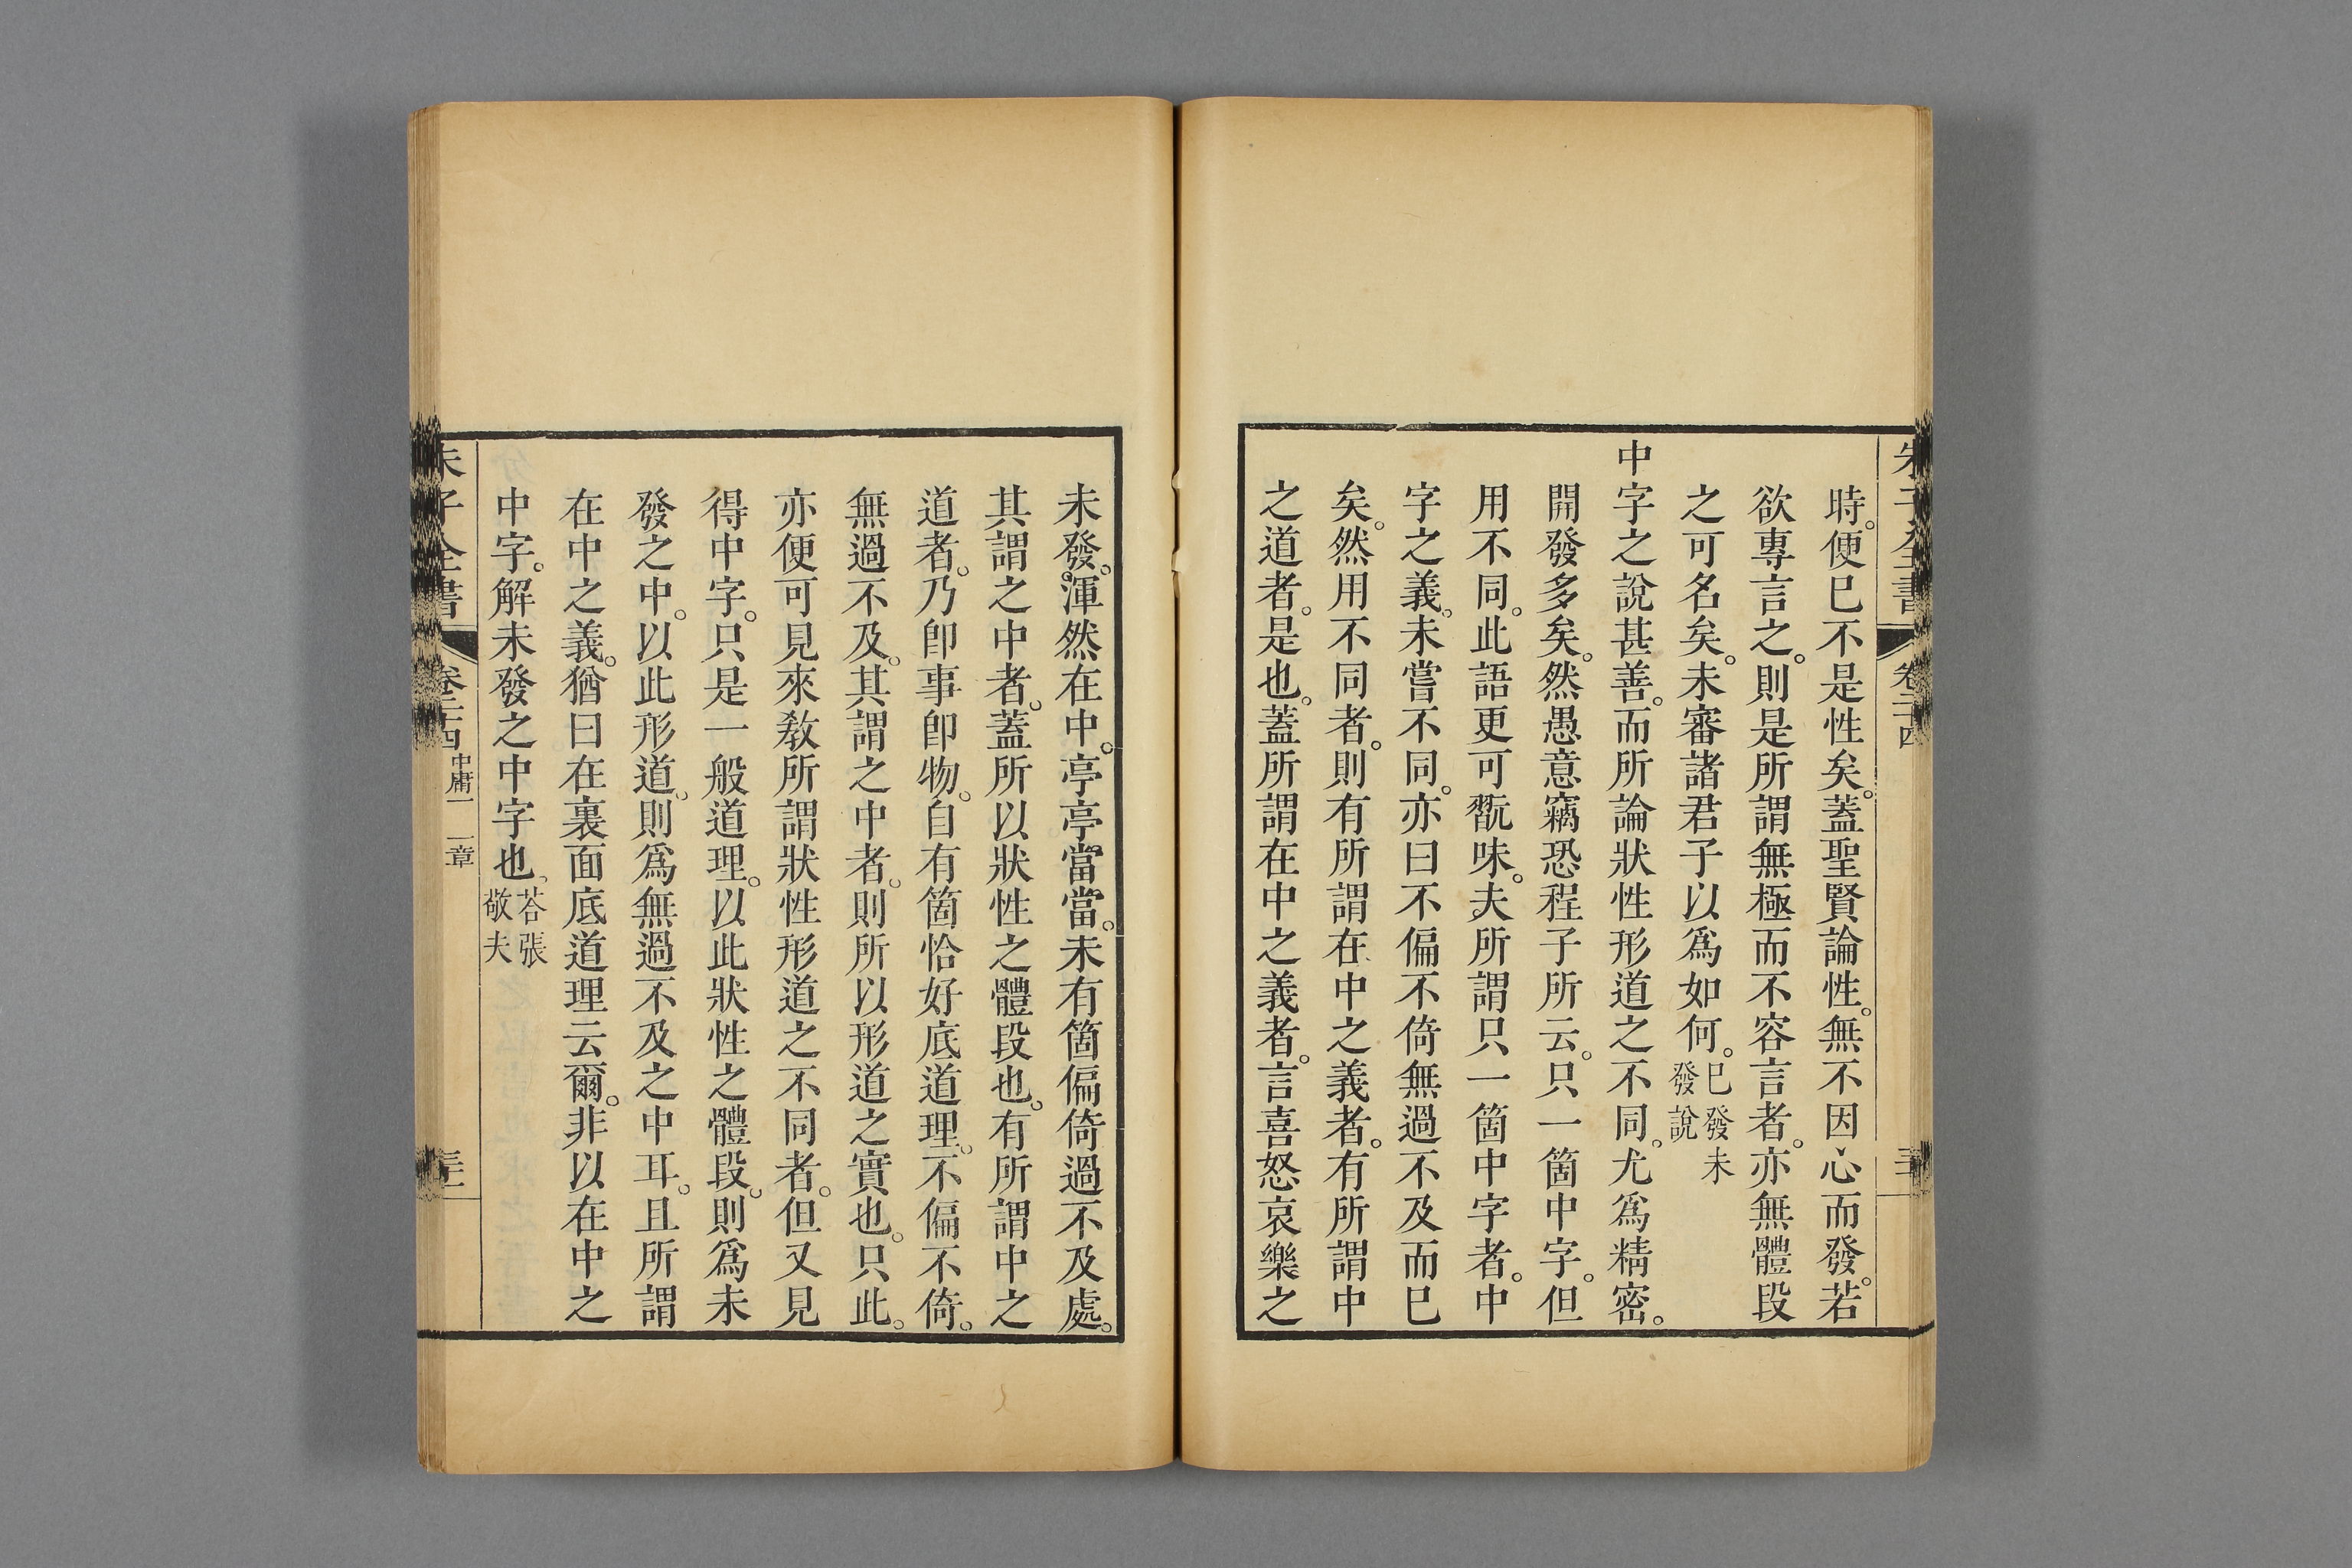 朱子全書 卷二十四
時。便巳不是性矣。蓋聖賢論性。無不因心而發。若
欲專言之。則是所謂無極而不容言者。亦無體段
之可名矣。未審諸君子以爲如何。巳發未發說
中字之說甚善。而所論狀性形道之不同。尤爲精密。
開發多矣。然愚意竊恐程子所云。只一箇中字。但
用不同。此語更可翫味。夫所謂只一箇中字者。中
字之義。未嘗不同。亦曰不偏不倚無過不及而巳
矣。然用不同者。則有所謂在中之義者。有所謂中
之道者。是也。蓋所謂在中之義者。言喜怒哀樂之
未發。渾然在中。亭亭當當。未有箇偏倚過不及處。
其謂之中者。蓋所以狀性之體段也。有所謂中之
道者。乃卽事卽物。自有箇恰好底道理。不偏不倚。
無過不及。其謂之中者。則所以形道之實也。只此。
亦便可見來敎所謂狀性形道之不同者。但又見
得中字。只是一般道理。以此狀性之體段。則爲未
發之中。以此形道。則爲無過不及之中耳。且所謂
在中之義。猶曰在裏面底道理云爾。非以在中之
中字。解未發之中字也。荅張敬夫
朱子全書 卷二十四 中庸一 一章